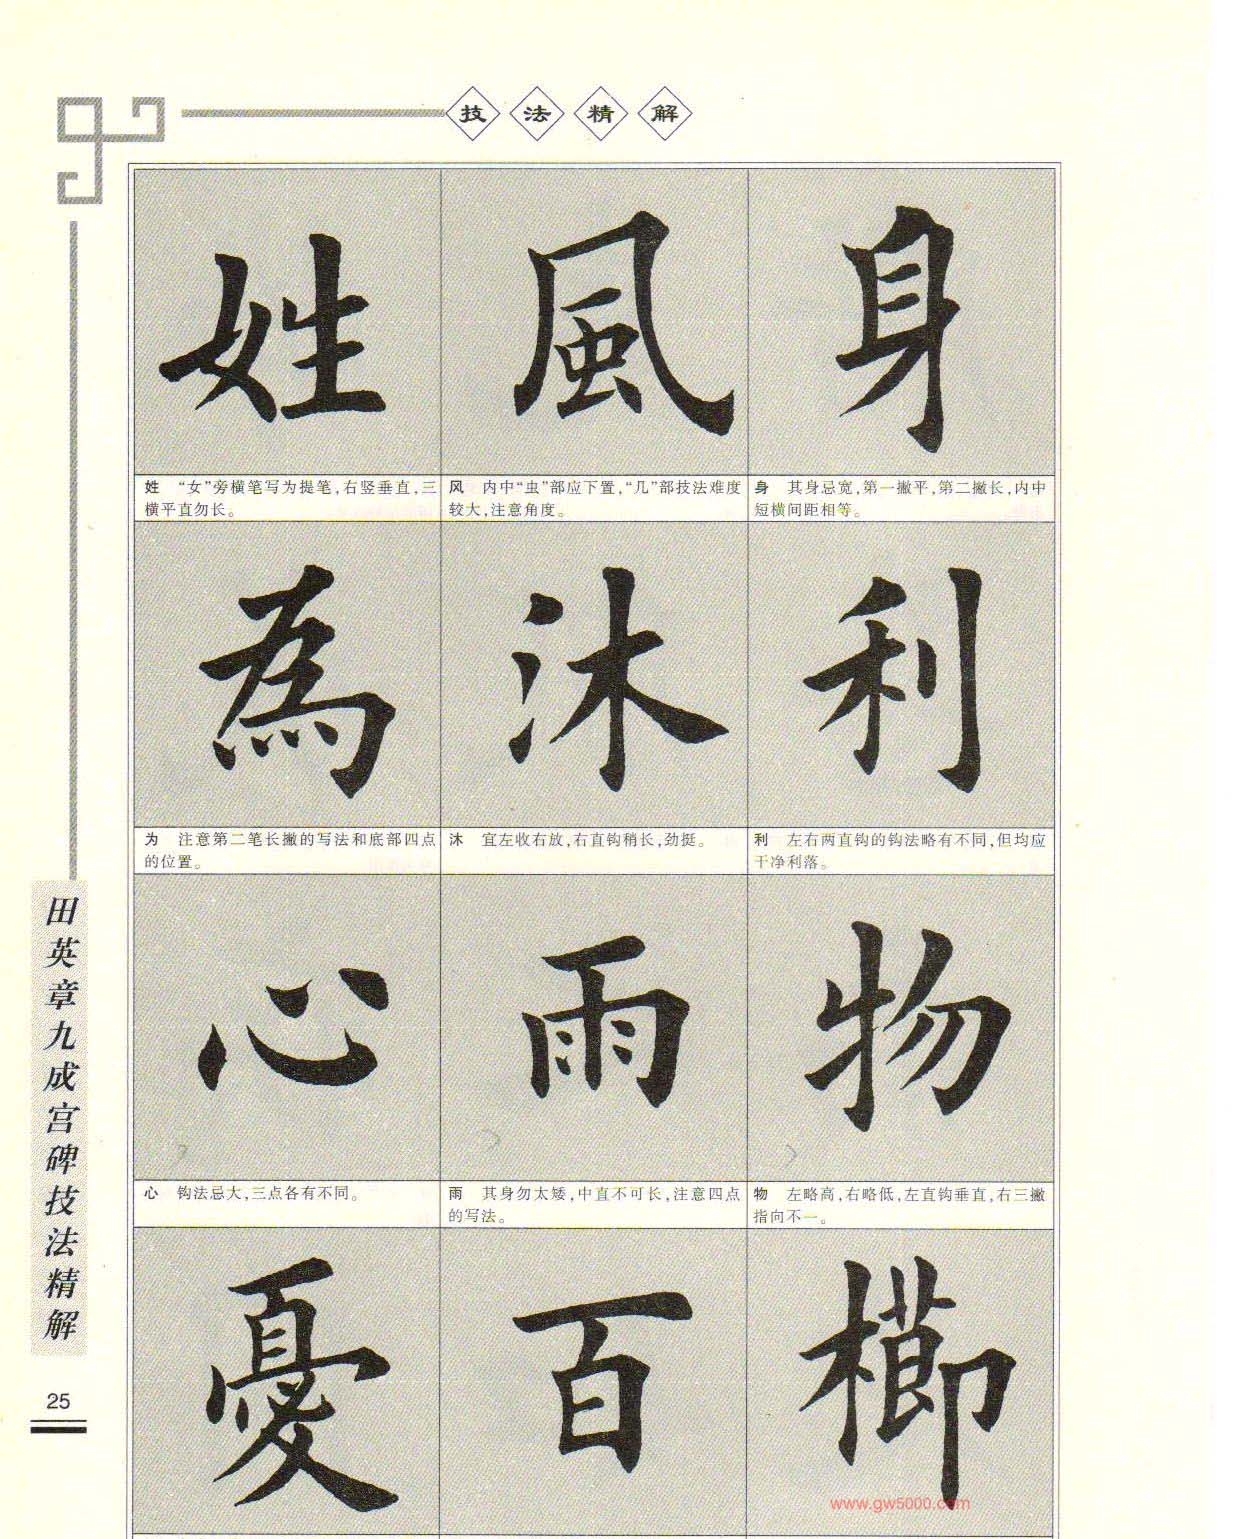 技法精解
姓
風
身
姓 “女”旁横笔写为提笔,右竖垂直,三
横平直勿长。
风 内中“虫”部应下置,“几”部技法难度
较大,注意角度。
身 其身忌宽,第一撇平,第二撇长,内中
短横间距相等。
為
沐
利
为 注意第二笔长撇的写法和底部四点
的位置。
沐 宜左收右放,右直钩稍长,劲挺。
利 左右两直钩的钩法略有不同,但均应
干净利落。
心
雨
物
心 钩法忌大,三点各有不同。
雨 其身勿太矮,中直不可长,注意四点
的写法。
物 左略高,右略低,左直钩垂直,右三撇
指向不一。
憂
百
櫛
田英章九成宫碑技法精解
25
www.gw5000.com